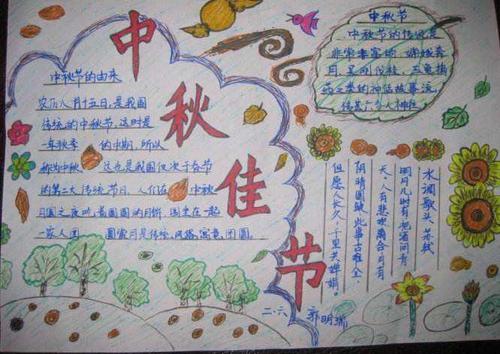 中秋佳节
中秋节的由来
农历八月十五日,是我国
传统的中秋节,这时是
一年秋季 的中期,所以
称为中秋 这也是我国仅次于春节
的第二大传统节日,人们在 中秋
月圆之夜吃着圆圆的月饼
一家人团
中秋节
中秋节的传说是
非常丰富的 嫦娥奔
月,吴刚伐桂,玉兔捣
药之类的神话故事流
水调歌头 苏轼
明月几时有 把酒问青
天,人有悲欢离合,月有
阴晴圆缺,此事古难全,
但愿人长久,千里共婵娟。
二.六